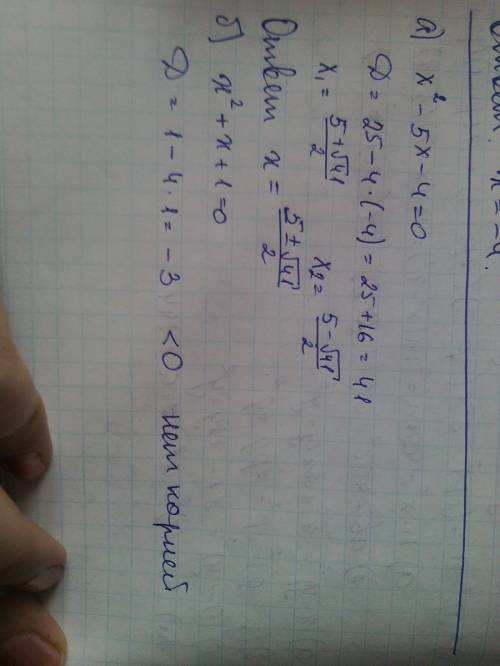 Ответ: x = -4.
а) x² - 5x - 4 = 0
D = 25 - 4·(-4) = 25 + 16 = 41
x₁ = (5+√41)/2 x₂ = (5-√41)/2
Ответ x = (5±√41)/2
б) x² + x + 1 = 0
D = 1 - 4·1 = -3 < 0 нет корней